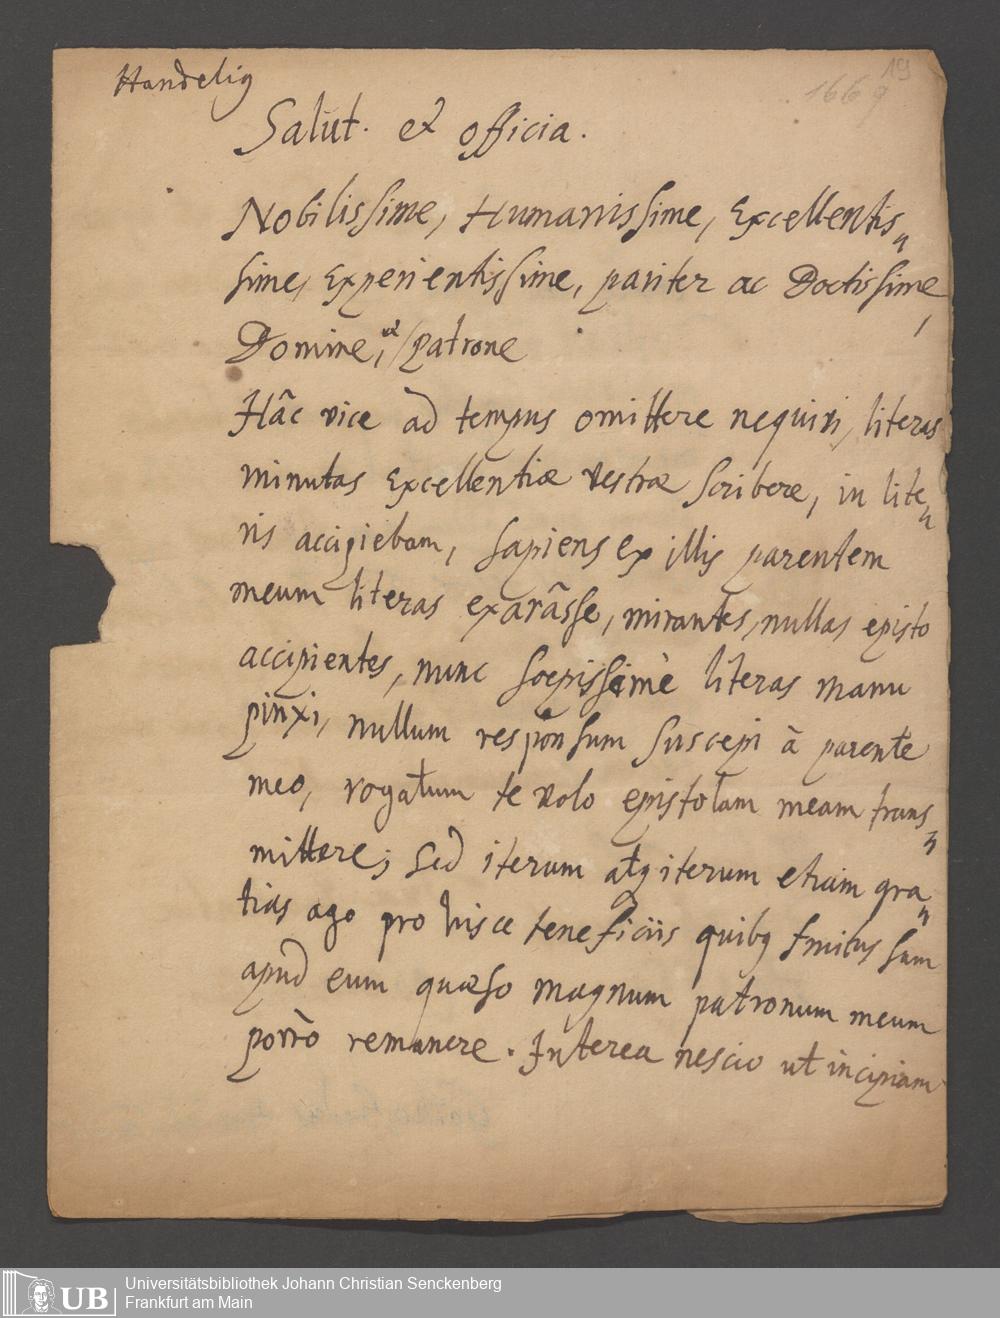 Handelig
19
1669
Salut. et officia.
Nobilissime, Humanissime, Excellentis„
sime, Experientissime, pariter ac Doctissime,
Domine, et Patrone
Hâc vice ad tempus omittere nequivi, literas
minutas Excellentiæ vestræ scribere, in lite„
ris accipiebam, sapiens ex illis parentem
meum literas exarâsse, mirantes, nullas episto
accipientes, nunc sœpissimè literas manu
pinxi, nullum responsum suscepi â parente
meo, rogatum te volo epistolam meam trans„
mittere; sed iterum atq iterum etiam gra„
tias ago pro hisce beneficiis quibq fruitus sum
apud eum quæso magnum patronum meum
porrò remanere. Interea nescio ut incipiam
UB
Universitätsbibliothek Johann Christian Senckenberg
Frankfurt am Main